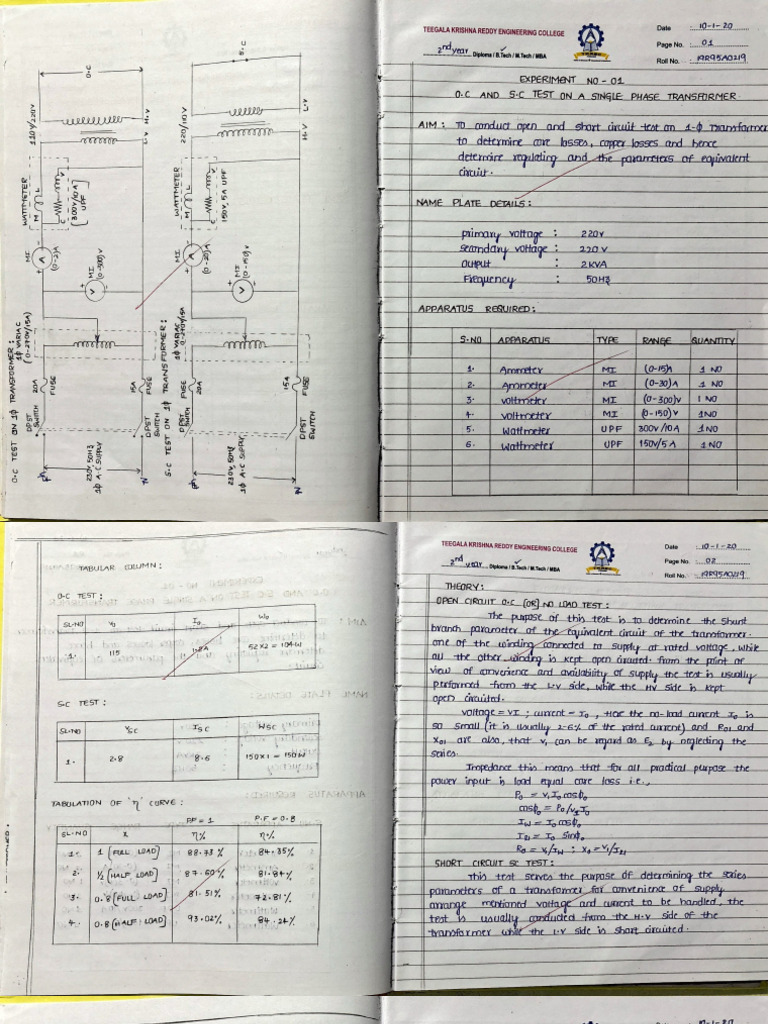 O.C TEST ON 1ϕ TRANSFORMER:
1ϕ VARIAC
(0-270V/15A)
20A
FUSE
DPST
SWITCH
Ph
230V, 50HZ
1ϕ A.C SUPPLY
N
DPST
SWITCH
15A
FUSE
MI
(0-2)A
A
MI
V
WATTMETER
M
L
C
V
[300V/10A]
UPF
110V/220V
O.C
L.V
H.V
S.C TEST ON 1ϕ TRANSFORMER:
1ϕ VARIAC
0-270V/15A
20A
FUSE
DPST
SWITCH
Ph
230V, 50HZ
1ϕ A.C SUPPLY
N
DPST
SWITCH
15A
FUSE
MI
(0-20)A
A
MI
V
WATTMETER
M
L
C
V
150V, 5A UPF
220/110V
S.C
H.V
L.V
TEEGALA KRISHNA REDDY ENGINEERING COLLEGE
2nd year Diploma / B.Tech / M.Tech / MBA
Date : 10-1-20
Page No. : 01
Roll No. : 19R95A0219
EXPERIMENT NO - 01
O.C AND S.C TEST ON A SINGLE PHASE TRANSFORMER.
AIM : To conduct open and short circuit test on 1-ϕ Transformer
to determine core losses, copper losses and hence
determine regulating and the parameters of equivalent
circuit.
NAME PLATE DETAILS :
primary voltage : 220V
secondary voltage : 220V
output : 2KVA
Frequency : 50HZ
APPARATUS REQUIRED :
S.NO APPARATUS TYPE RANGE QUANTITY
1. Ammeter MI (0-15)A 1 NO
2. Ammeter MI (0-30)A 1 NO
3. voltmeter MI (0-300)V 1 NO
4. voltmeter MI (0-150)V 1NO
5. wattmeter UPF 300V/10A 1NO
6. wattmeter UPF 150V/5A 1NO
TABULAR COLUMN :
O.C TEST :
SL.NO V0 I0 W0
1. 115 52×2 = 104W
S.C TEST :
SL.NO VSC ISC WSC
1. 2.8 8.6 150×1 = 150W
TABULATION OF "η" CURVE :
P.F = 1 P.F = 0.8
SL.NO X η% η%
1. 1 [FULL LOAD] 88.73% 84.35%
2. ½ [HALF LOAD] 87.60% 81.84%
3. 0.8 [FULL LOAD] 81.51% 72.81%
4. 0.8 [HALF LOAD] 93.02% 84.24%
TEEGALA KRISHNA REDDY ENGINEERING COLLEGE
2nd year Diploma / B.Tech / M.Tech / MBA
Date : 10-1-20
Page No. : 02
Roll No. : 19R95A0219
THEORY :
OPEN CIRCUIT O.C [OR] NO LOAD TEST :
The purpose of this test is to determine the shunt
branch parameter of the equivalent circuit of the transformer.
one of the winding connected to supply at rated voltage, while
all the other winding is kept open circuited. from the point of
view of convenience and availability of supply the test is usually
performed from the L.V side, while the HV side is kept
open circuited.
voltage = V1 ; current = I0 , Here the no-load current I0 is
so small (it is usually 2-6% of the rated current) and R01 and
X01 are also, that V1 can be regard as E2 by neglecting the
series.
Impedance this means that for all practical purpose the
power input is load equal core loss i.e.,
P0 = V1 I0 cosϕ0
cosϕ0 = P0/V1 I0
IW = I0 cosϕ0
I21 = I0 sinϕ0
R0 = V1/IW ; X0 = V1/I21
SHORT CIRCUIT SC TEST :
This test serves the purpose of determining the series
parameters of a transformer for convenience of supply
arrange mentioned voltage and current to be handled, the
test is usually conducted from the H.V side of the
transformer while the L.V side is short circuited.